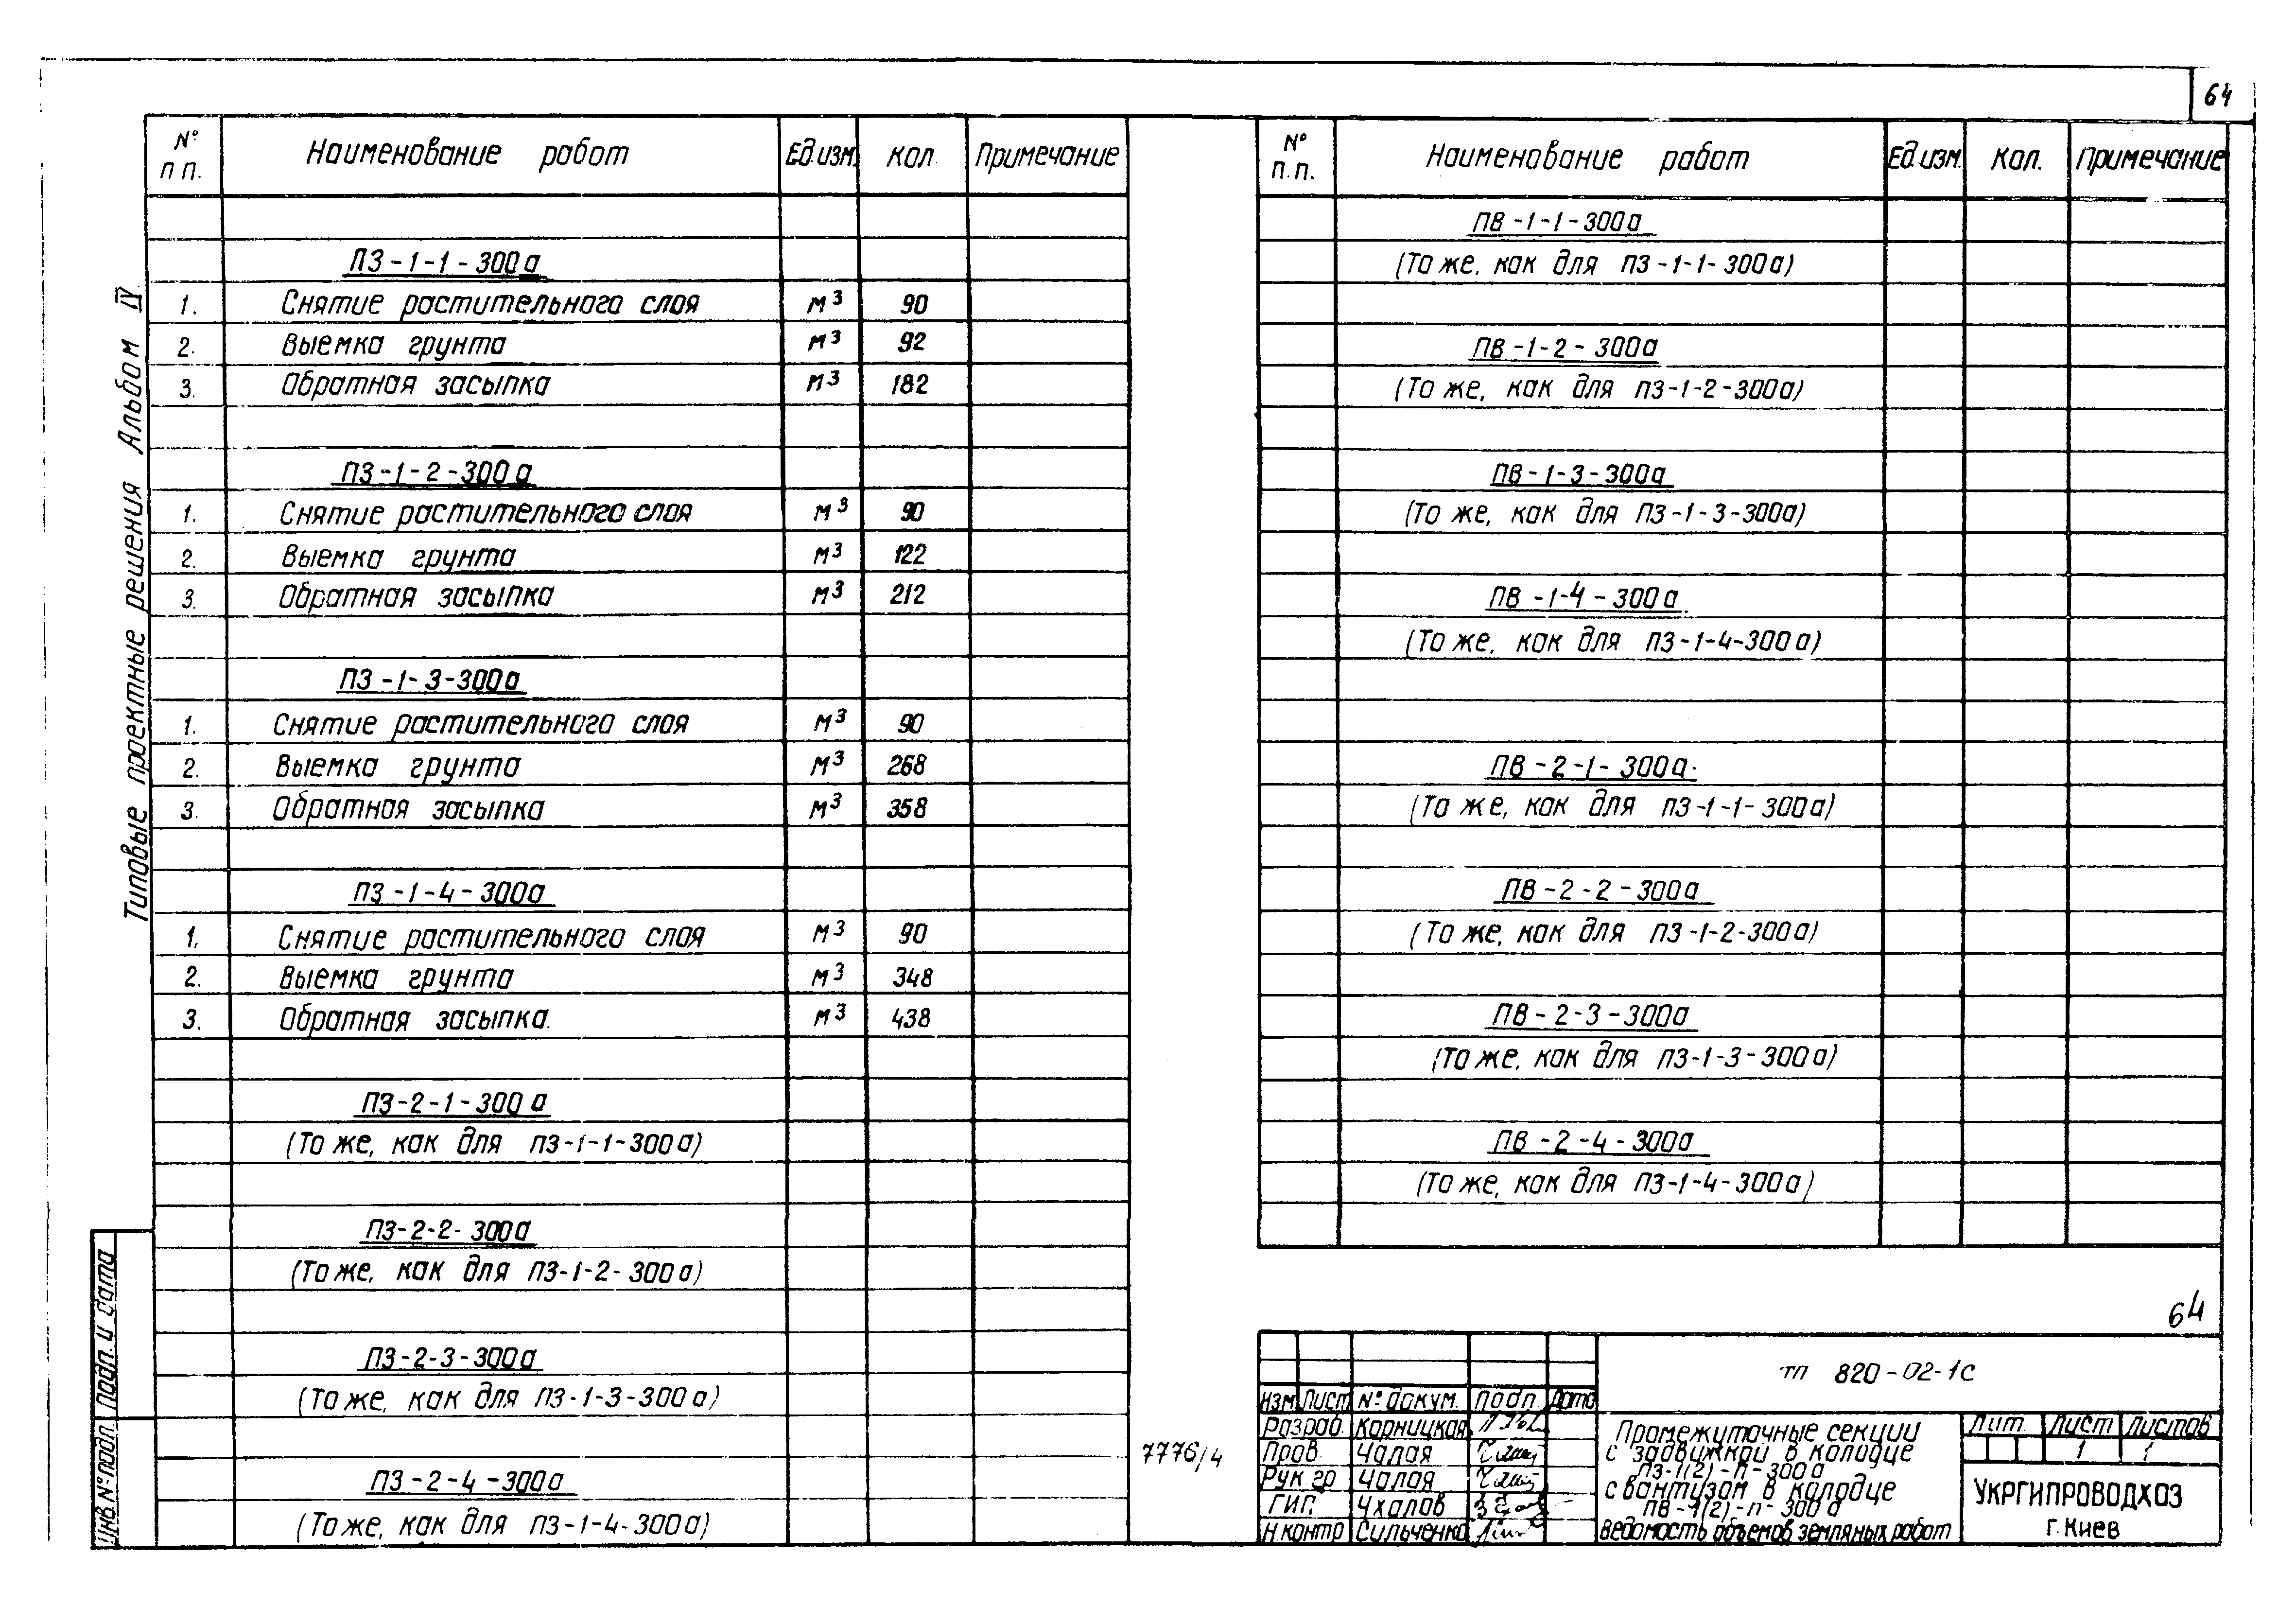 64
Типовые проектные решения Альбом IV
№ п.п. Наименование работ Ед.изм. Кол. Примечание
ПЗ-1-1-300а
1. Снятие растительного слоя м3 90
2. Выемка грунта м3 92
3. Обратная засыпка м3 182
ПЗ-1-2-300а
1. Снятие растительного слоя м3 90
2. Выемка грунта м3 122
3. Обратная засыпка м3 212
ПЗ-1-3-300а
1. Снятие растительного слоя м3 90
2. Выемка грунта м3 268
3. Обратная засыпка м3 358
ПЗ-1-4-300а
1. Снятие растительного слоя м3 90
2. Выемка грунта м3 348
3. Обратная засыпка. м3 438
ПЗ-2-1-300а
(То же, как для ПЗ-1-1-300а)
ПЗ-2-2-300а
(То же, как для ПЗ-1-2-300а)
ПЗ-2-3-300а
(То же, как для ПЗ-1-3-300а)
ПЗ-2-4-300а
(То же, как для ПЗ-1-4-300а)
№ п.п. Наименование работ Ед.изм. Кол. Примечание
ПВ-1-1-300а
(То же, как для ПЗ-1-1-300а)
ПВ-1-2-300а
(То же, как для ПЗ-1-2-300а)
ПВ-1-3-300а
(То же, как для ПЗ-1-3-300а)
ПВ-1-4-300а
(То же, как для ПЗ-1-4-300а)
ПВ-2-1-300а
(То же, как для ПЗ-1-1-300а)
ПВ-2-2-300а
(То же, как для ПЗ-1-2-300а)
ПВ-2-3-300а
(То же, как для ПЗ-1-3-300а)
ПВ-2-4-300а
(То же, как для ПЗ-1-4-300а)
64
7776/4
ТП 820-02-1С
Изм. Лист № докум. Подп Дата
Разраб. Корницкая
Пров. Чалая
Рук гр Чалая
ГИП. Чхалов
Н контр Сильченко
Промежуточные секции
с задвижкой в колодце
ПЗ-1(2)-п-300а
с вантузом в колодце
ПВ-1(2)-п-300а
Ведомость объемов земляных работ
Лит. Лист Листов
1 1
УКРГИПРОВОДХОЗ
г. Киев
Инв № подл. Подп. и дата